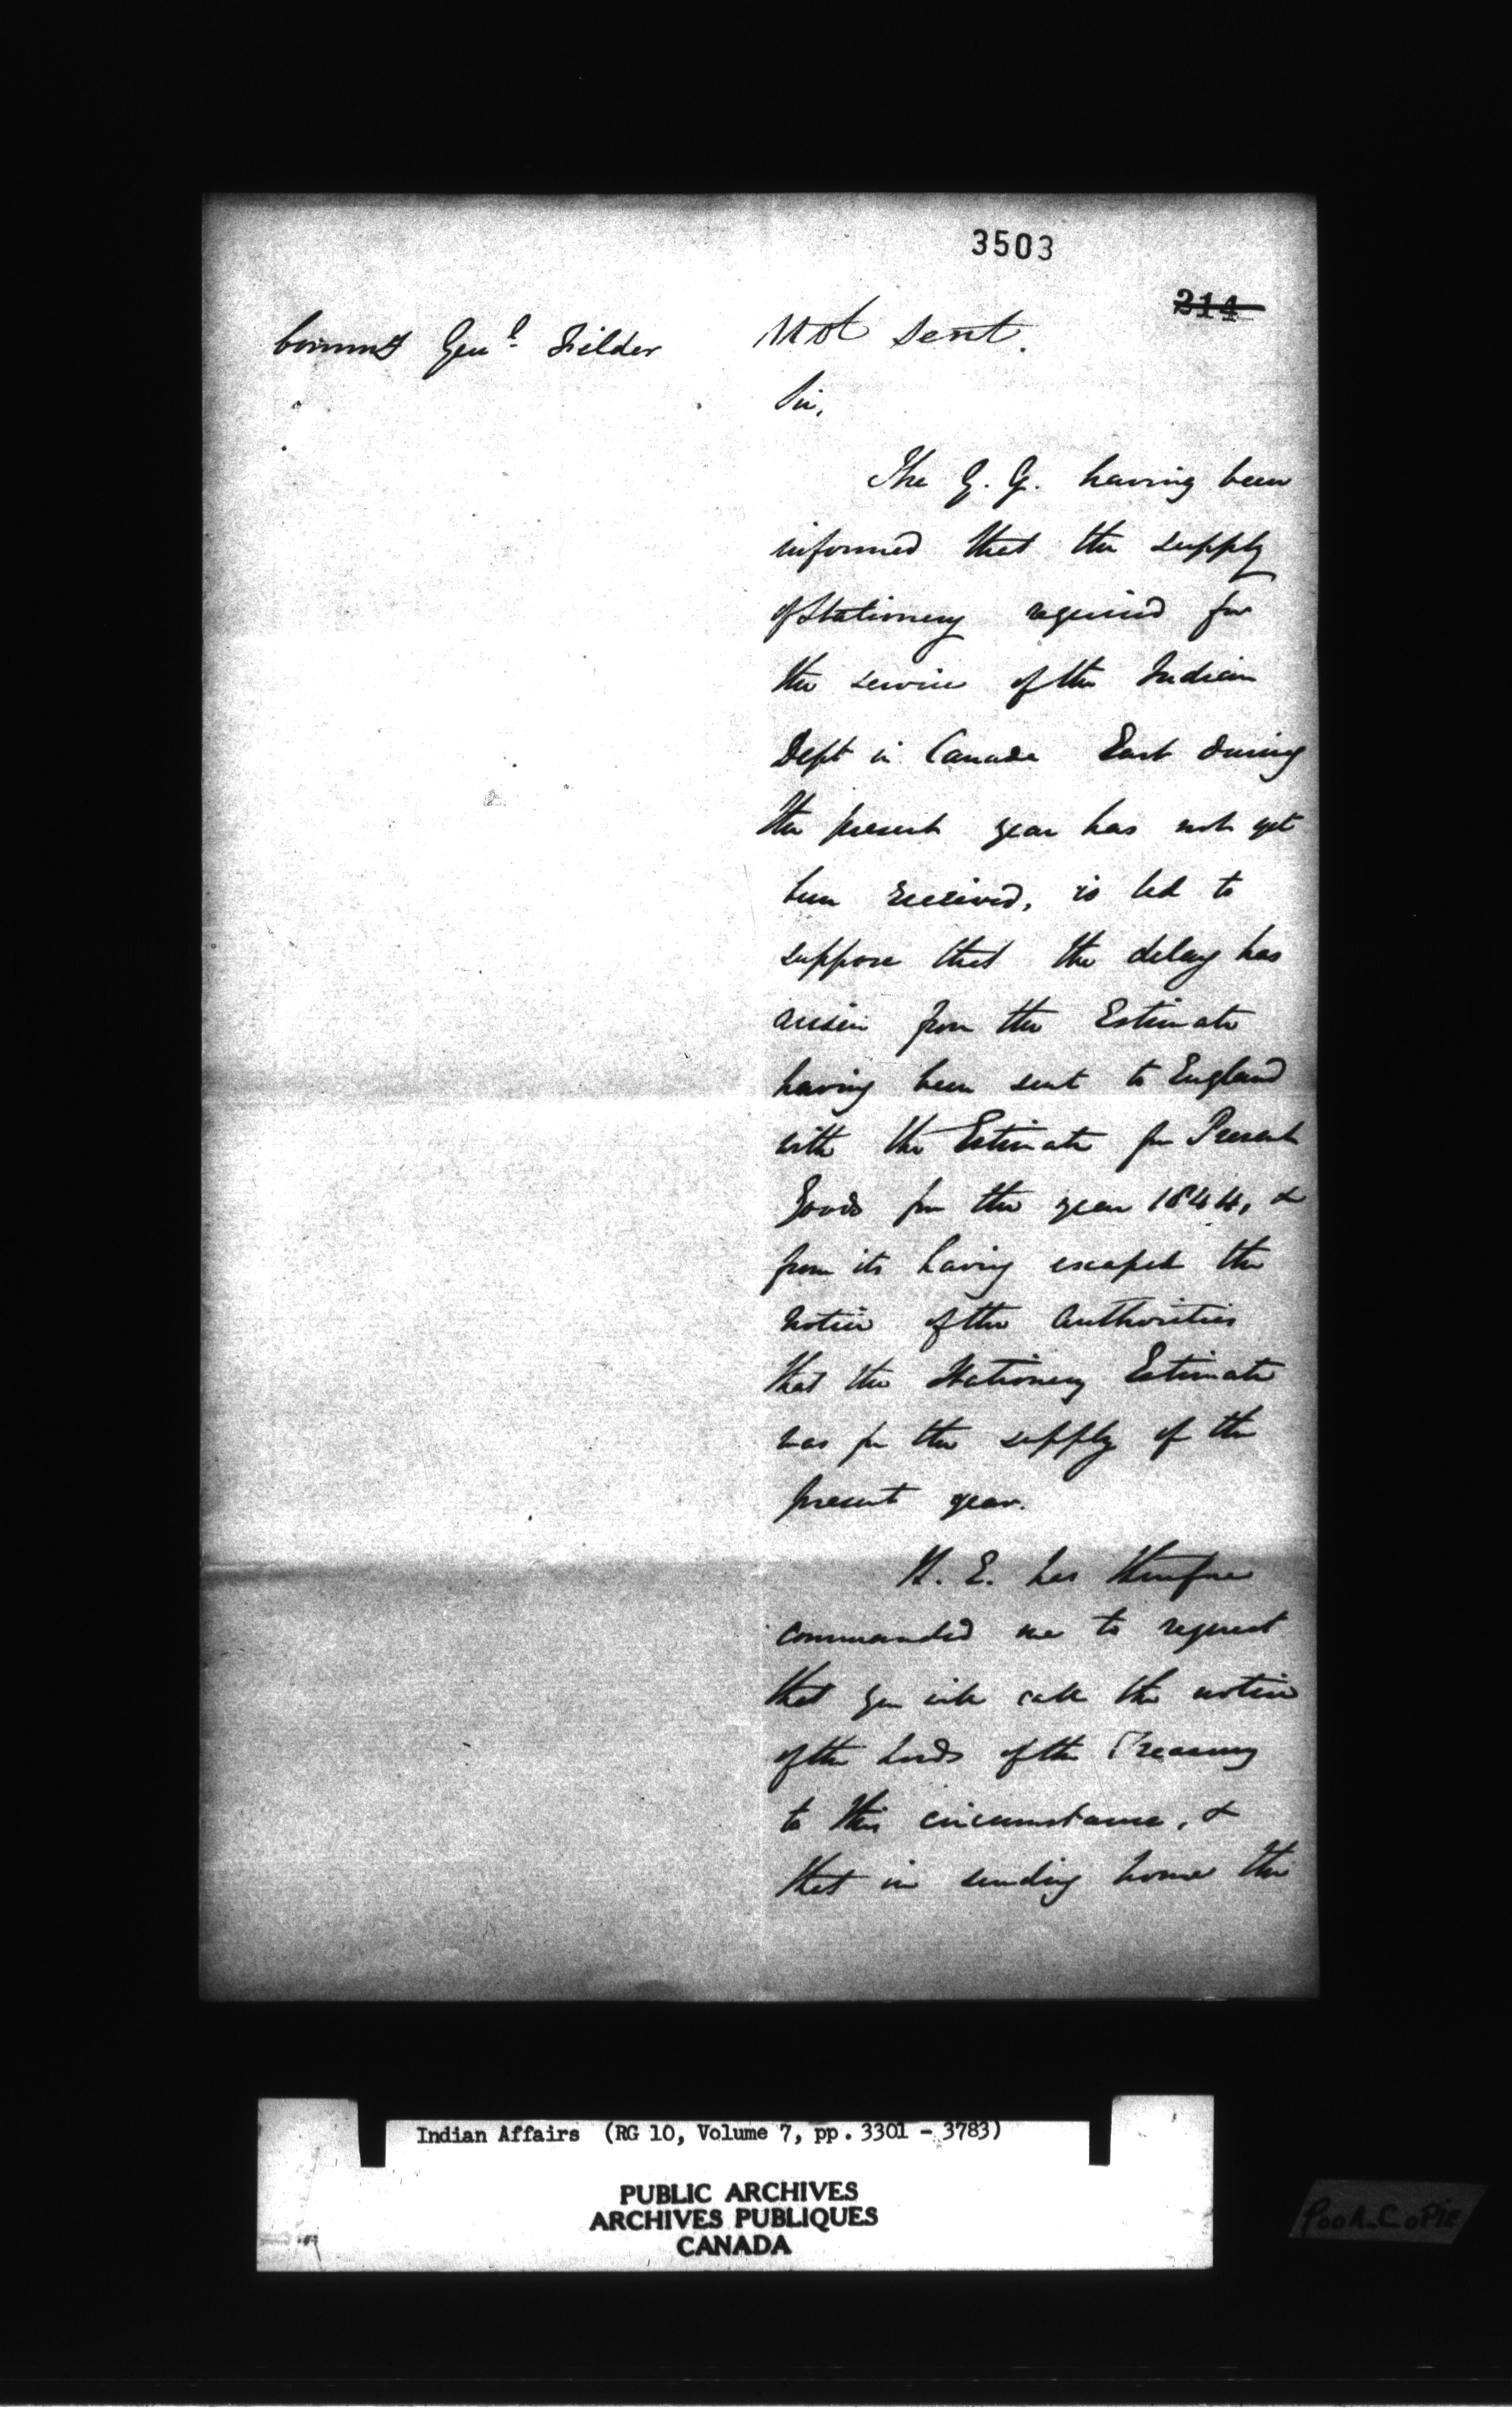 3503
214
Commy Genl. Filder
Not sent.
Sir,
The G. G. having been
informed that the supply
of Stationery required for
the service of the Indian
Dept in Canada East during
the present year has not yet
been received, is led to
suppose that the delay has
arisen from the Estimate
having been sent to England
with the Estimate for Present
Goods for the year 1844, &
from its having escaped the
notice of the Authorities
that the Stationery Estimate
was for the supply of the
present year.
H. E. has therefore
commanded me to request
that you will call the notice
of the Lords of the Treasury
to this circumstance, &
that in sending home the
Indian Affairs (RG 10, Volume 7, pp. 3301 - 3783)
PUBLIC ARCHIVES
ARCHIVES PUBLIQUES
CANADA
Poor Copie